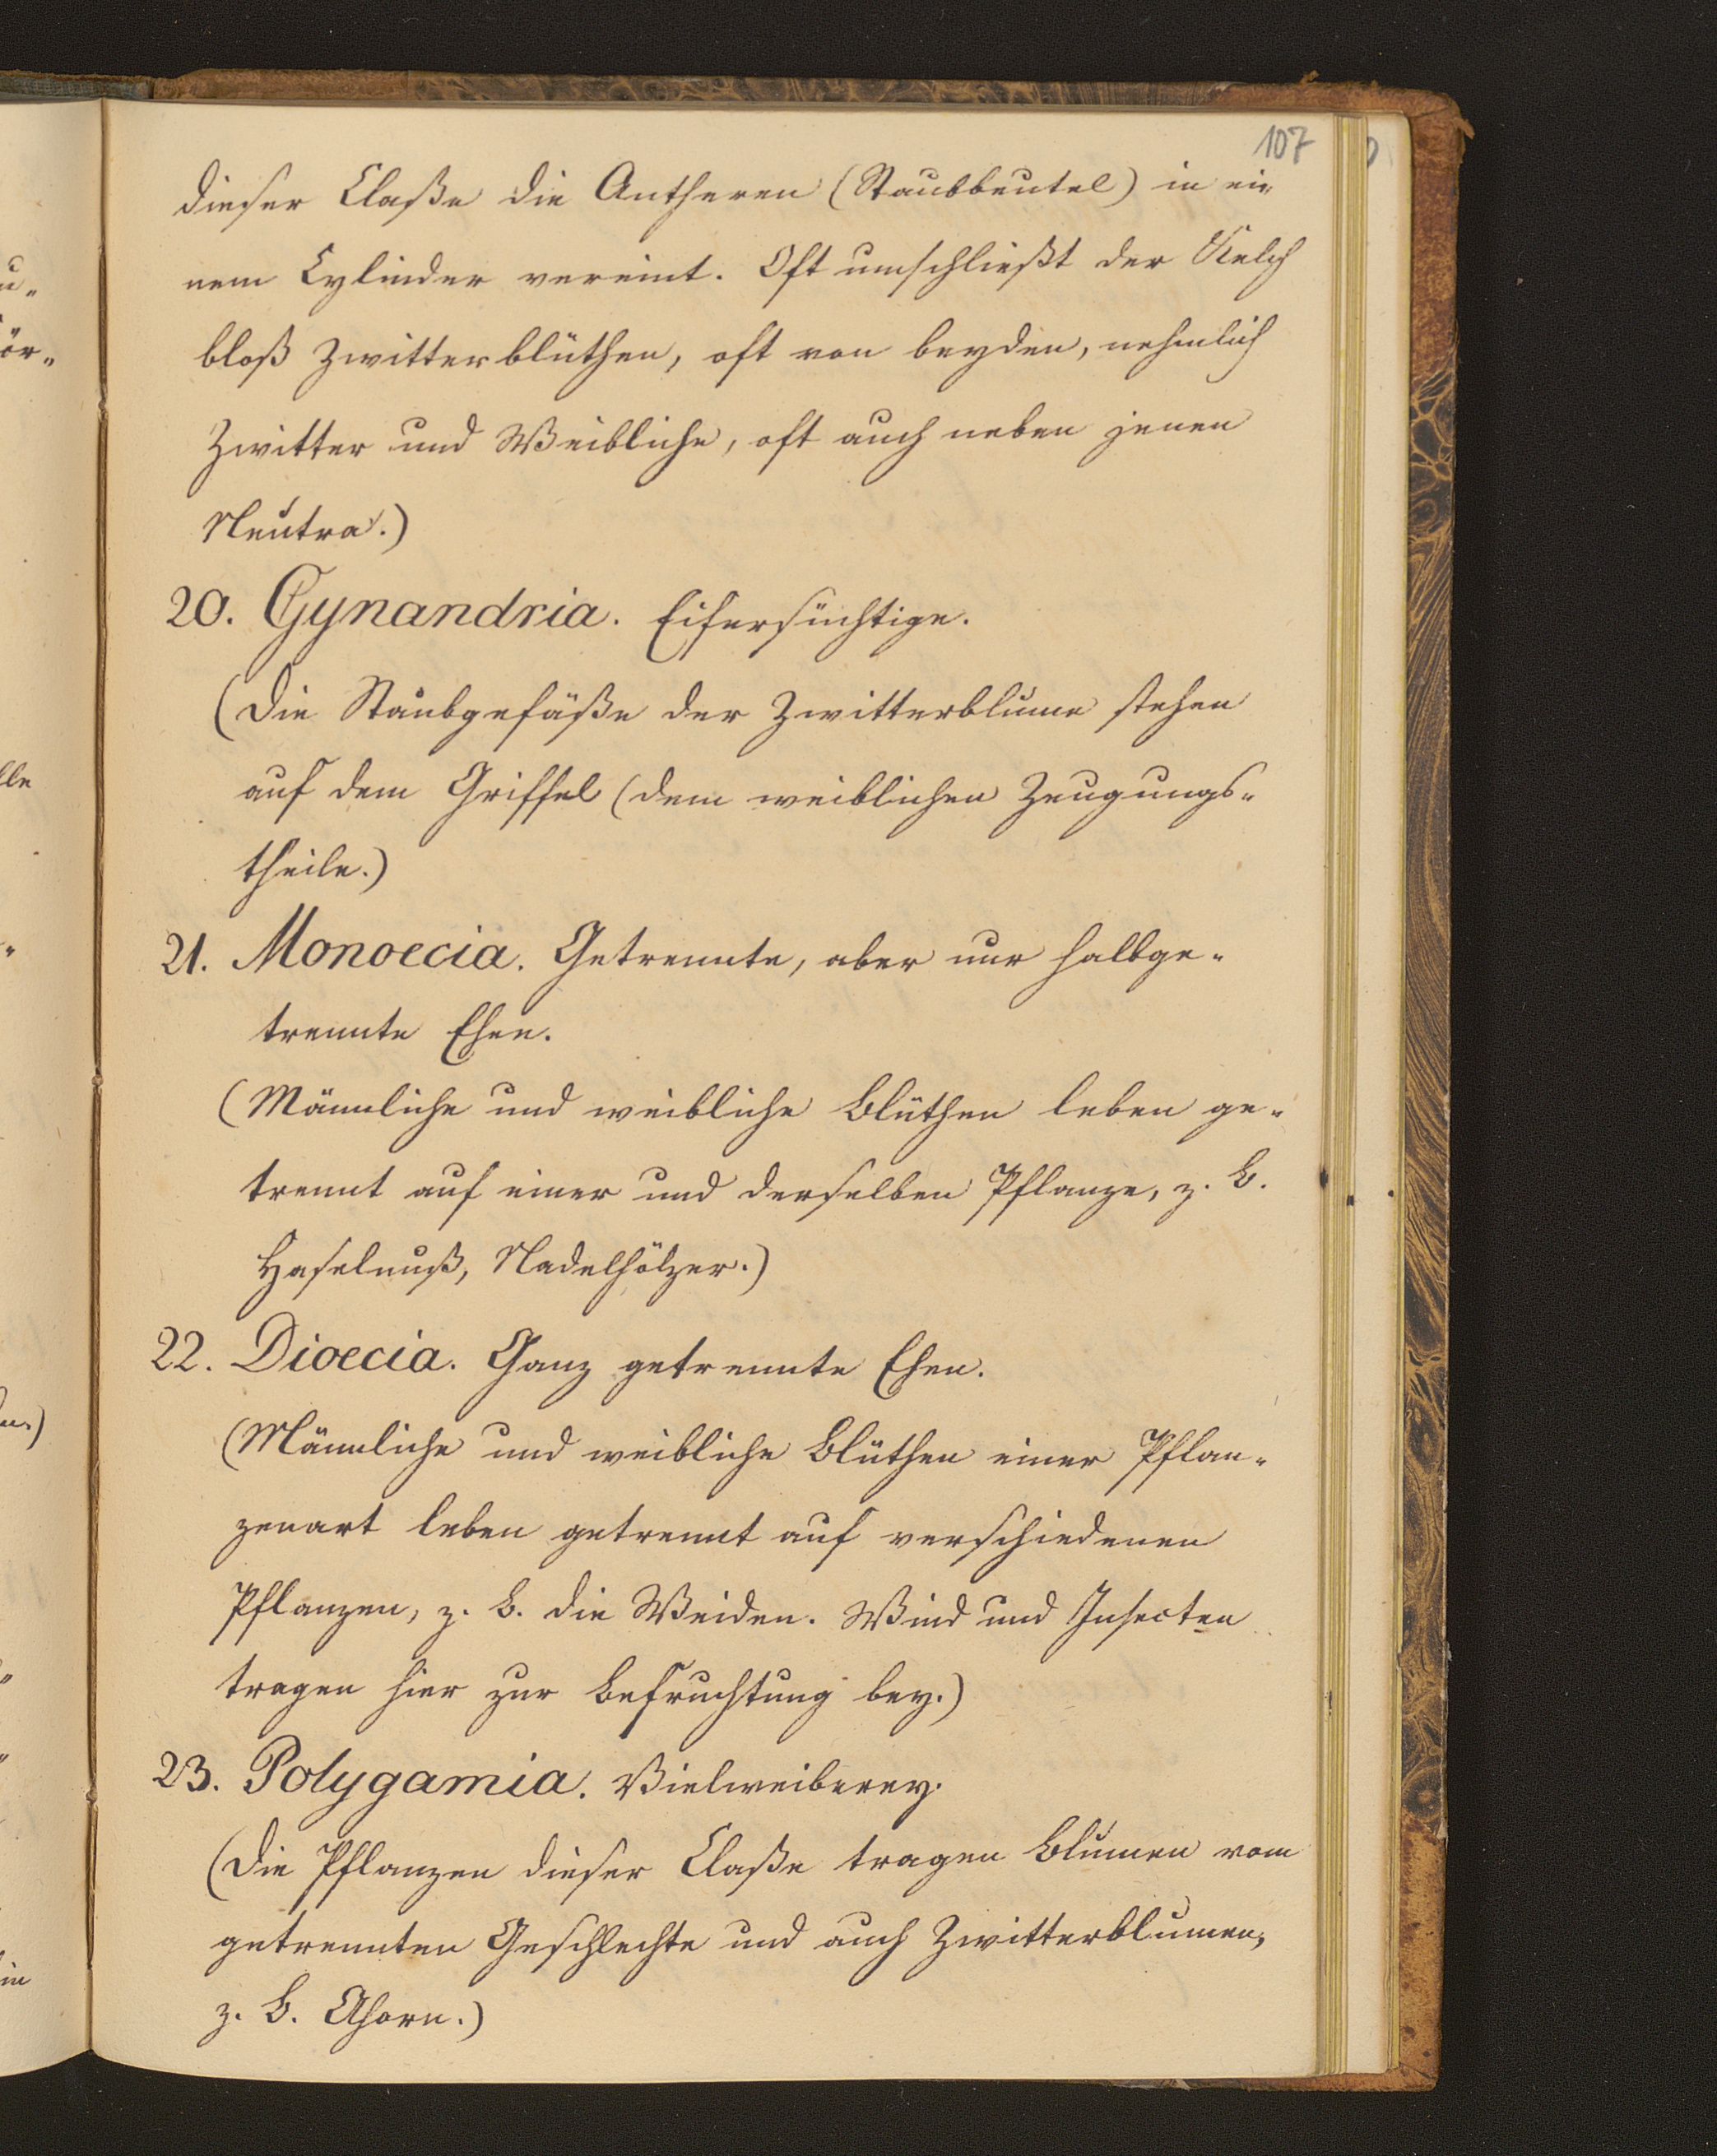 107
dieser Claße die Antheren (Staubbeutel) in ei-
nem Cylinder vereint. Oft umschließt der Kelch
bloß Zwitterblüthen, oft von beyden, nehmlich
Zwitter und Weibliche, oft auch neben jenen
Neutra.)
20. Gynandria. Eifersüchtige.
(Die Staubgefäße der Zwitterblume stehen
auf dem Griffel (dem weiblichen Zeugungs-
theile.)
21. Monoecia. Getrennte, aber nur halbge-
trennte Ehen.
(Männliche und weibliche Blüthen leben ge-
trennt auf einer und derselben Pflanze, z. B.
Haselnuß, Nadelhölzer.)
22. Dioecia. Ganz getrennte Ehen.
(Männliche und weibliche Blüthen einer Pflan-
zenart leben getrennt auf verschiedenen
Pflanzen, z. B. die Weiden. Wind und Insecten
tragen hier zur Befruchtung bey.)
23. Polygamia. Vielweiberey.
(Die Pflanzen dieser Claße tragen Blumen vom
getrennten Geschlechte und auch Zwitterblumen,
z. B. Ahorn.)